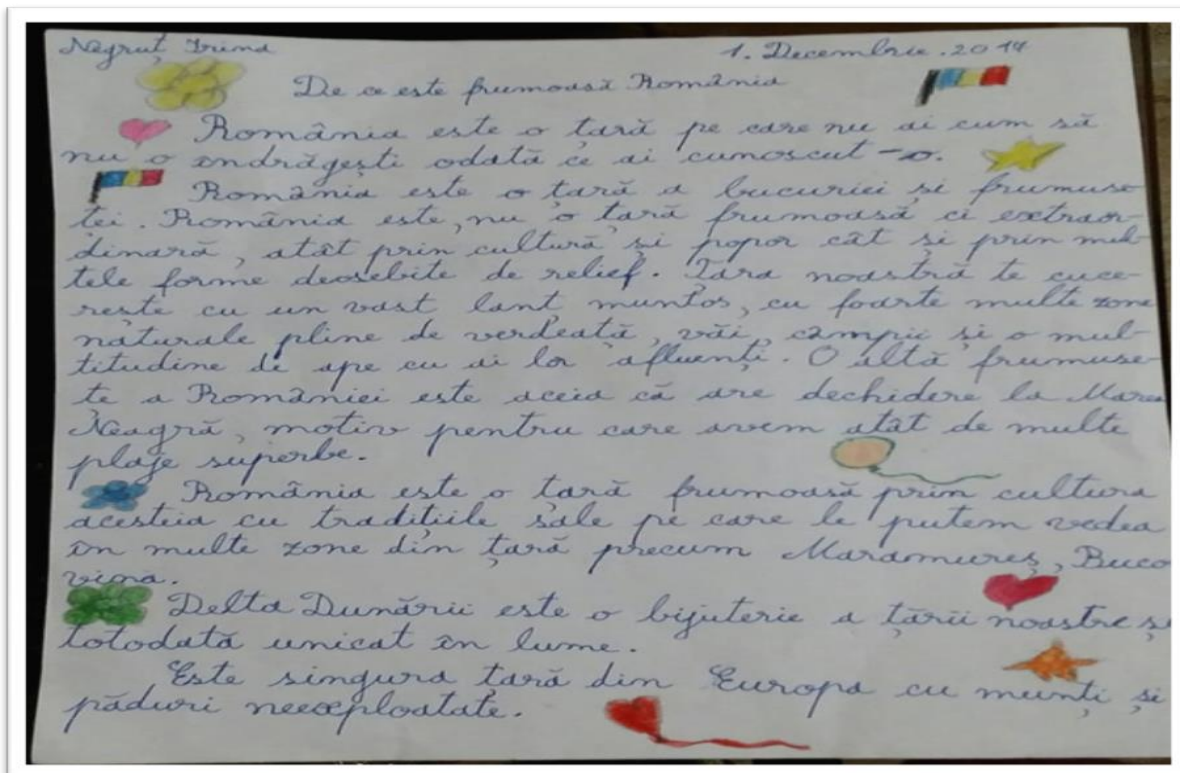 Negruț Irina 1. Decembrie. 2014
De ce este frumoasă România
România este o țară pe care nu ai cum să
nu o îndrăgești odată ce ai cunoscut-o.
România este o țară a bucuriei și frumuse
ței. România este, nu o țară frumoasă ci extraor-
dinară, atât prin cultură și popor cât și prin mul-
tele forme deosebite de relief. Țara noastră te cuce-
rește cu un vast lanț muntos, cu foarte multe zone
naturale pline de verdeață, văi, câmpii și o mul-
titudine de ape cu ai lor afluenți. O altă frumuse-
țe a României este aceia că are dechidere la Marea
Neagră, motiv pentru care avem atât de multe
plaje superbe.
România este o țară frumoasă prin cultura
acesteia cu tradițiile sale pe care le putem vedea
în multe zone din țară precum Maramureș, Buco
vina.
Delta Dunării este o bijuterie a țării noastre și
totodată unicat în lume.
Este singura țară din Europa cu munți și
păduri neexploatate.